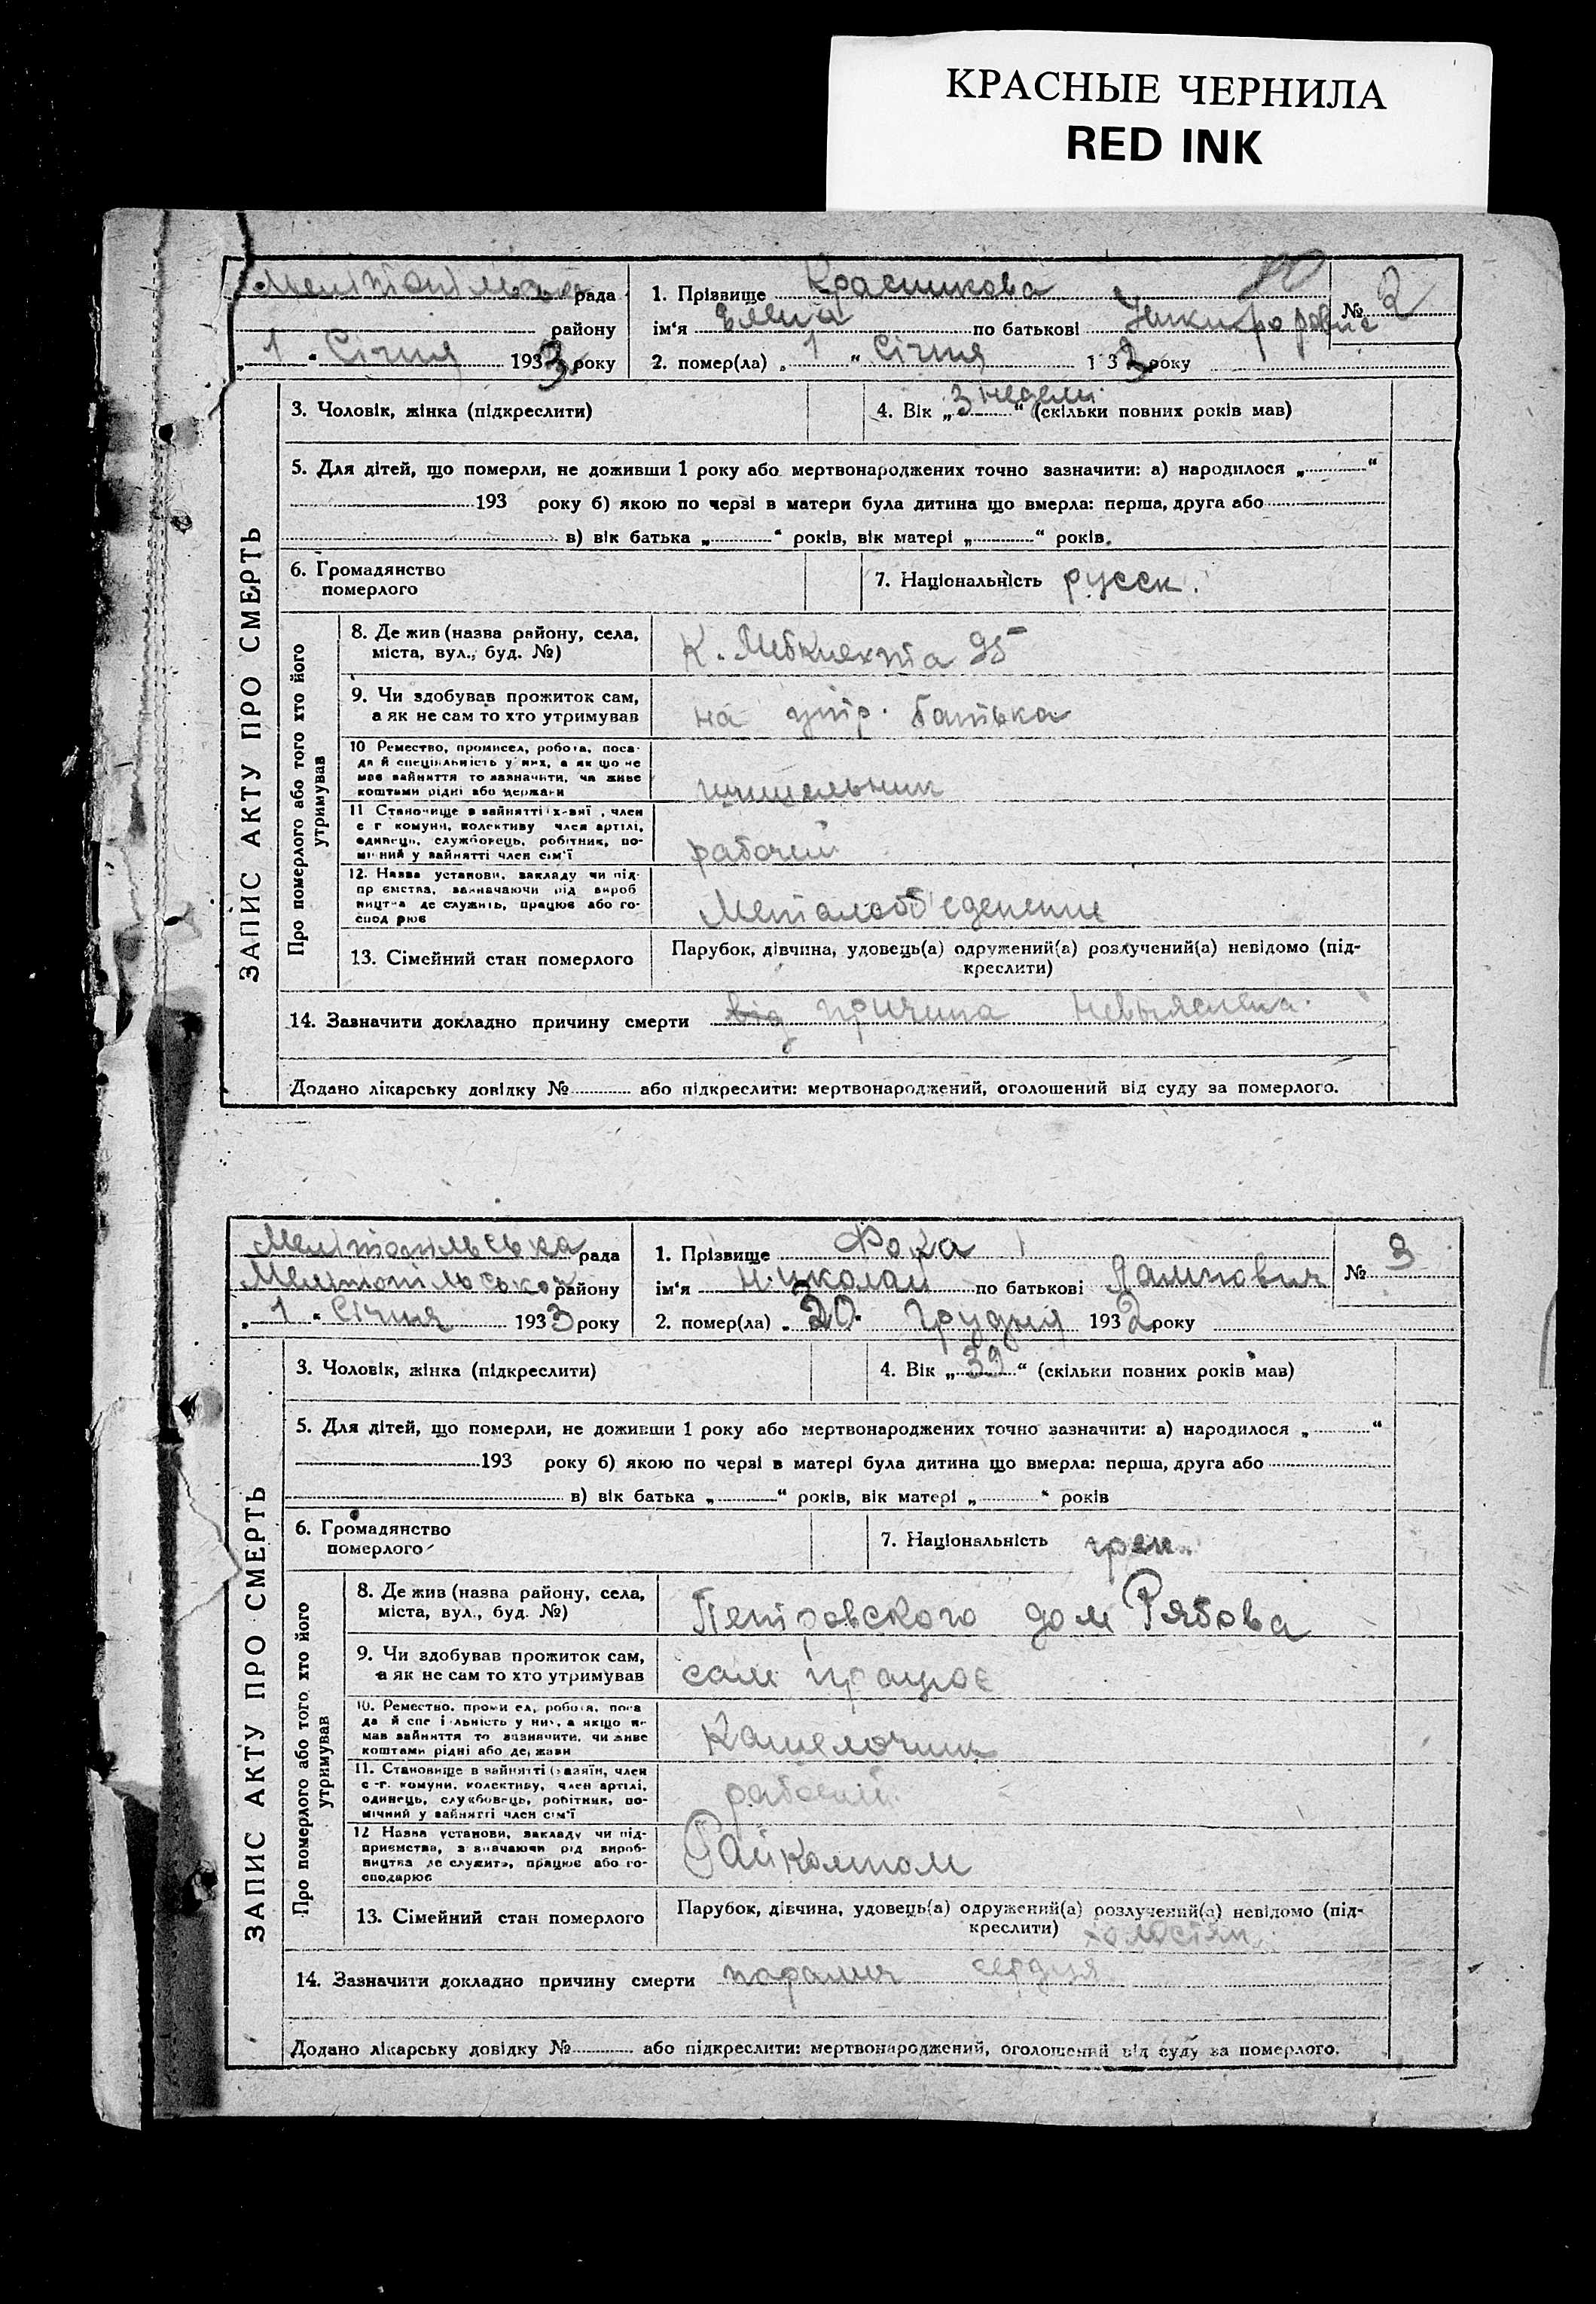 КРАСНЫЕ ЧЕРНИЛА
RED INK
ЗАПИС АКТУ ПРО СМЕРТЬ
Мелітопільська рада
району
„1“ Січня 1933 року
1. Прізвище Красникова
ім'я по батькові
2. помер(ла) „1“ Січня 1 33 року
№ 2
3. Чоловік, жінка (підкреслити)
4. Вік „3 недели“ (скільки повних років мав)
5. Для дітей, що померли, не доживши 1 року або мертвонароджених точно зазначити: а) народилося „ “
193 року б) якою по черзі в матери була дитина що вмерла: перша, друга або
в) вік батька „ “ років, вік матері „ “ років.
6. Громадянство
померлого
7. Національність русск.
Про померлого або того хто його
утримував
8. Де жив (назва району, села,
міста, вул., буд. №)
К. Лібкнехта 95
9. Чи здобував прожиток сам,
а як не сам то хто утримував
на утр. батька
10 Ремество, промисел, робота, поса-
да й спеціяльність у них, а як що не
мав зайняття то зазначити, чи живе
коштами рідні або держави
11 Становище в зайнятті х-зяї , член
с г комуни, колективу член артілі,
одинець, службовець, робітник, по-
мічний у зайнятті член сім'ї
рабочий
12. Назва установи, закладу чи під-
пр ємства, зазначаючи рід вироб
ництва де служить, працює або го-
спод рює
Металооб'єденение
13. Сімейний стан померлого
Парубок, дівчина, удовець(а) одружений(а) розлучений(а) невідомо (під-
креслити)
14. Зазначити докладно причину смерти від причина невыяснена.
Додано лікарську довідку № або підкреслити: мертвонароджений, оголошений від суду за померлого.
ЗАПИС АКТУ ПРО СМЕРТЬ
Мелітопільська рада
Мелітопільського району
„1“ Січня 1933 року
1. Прізвище Фока
ім'я Николай по батькові
2. помер(ла) „30“ Грудня 1932 року
№ 3
3. Чоловік, жінка (підкреслити)
4. Вік „39“ (скільки повних років мав)
5. Для дітей, що померли, не доживши 1 року або мертвонароджених точно зазначити: а) народилося „ “
193 року б) якою по черзі в матері була дитина що вмерла: перша, друга або
в) вік батька „ “ років, вік матері „ “ років
6. Громадянство
померлого
7. Національність грек.
Про померлого або того хто його
утримував
8. Де жив (назва району, села,
міста, вул., буд. №)
Петровского дом Рябова
9. Чи здобував прожиток сам,
а як не сам то хто утримував
сам працює
10. Ремество, проми ел, робота, поса
да й спе і льність у них, а якщо не
мав зайняття то зазначити, чи живе
коштами рідні або держави
11. Становище в зайнятті (хазяїн, член
с -г. комуни, колективу, член артілі,
одинець, службовець, робітник, по-
мічний у зайнятті член сім'ї
рабочий
12 Назва установи, закладу чи під-
приємства, зазначаючи рід вироб-
ництва де служить, працює або го-
сподарює
Райкомпом
13. Сімейний стан померлого
Парубок, дівчина, удовець(а) одружений(а) розлучений(а) невідомо (під-
креслити)
14. Зазначити докладно причину смерти параліч сердця
Додано лікарську довідку № або підкреслити: мертвонароджений, оголошений від суду за померлого.